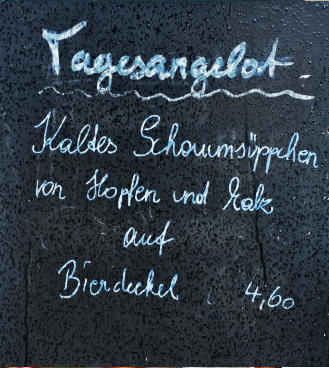 Tagesangebot
Kaltes Schaumsüppchen
von Hopfen und Malz
auf
Bierdeckel 4,60